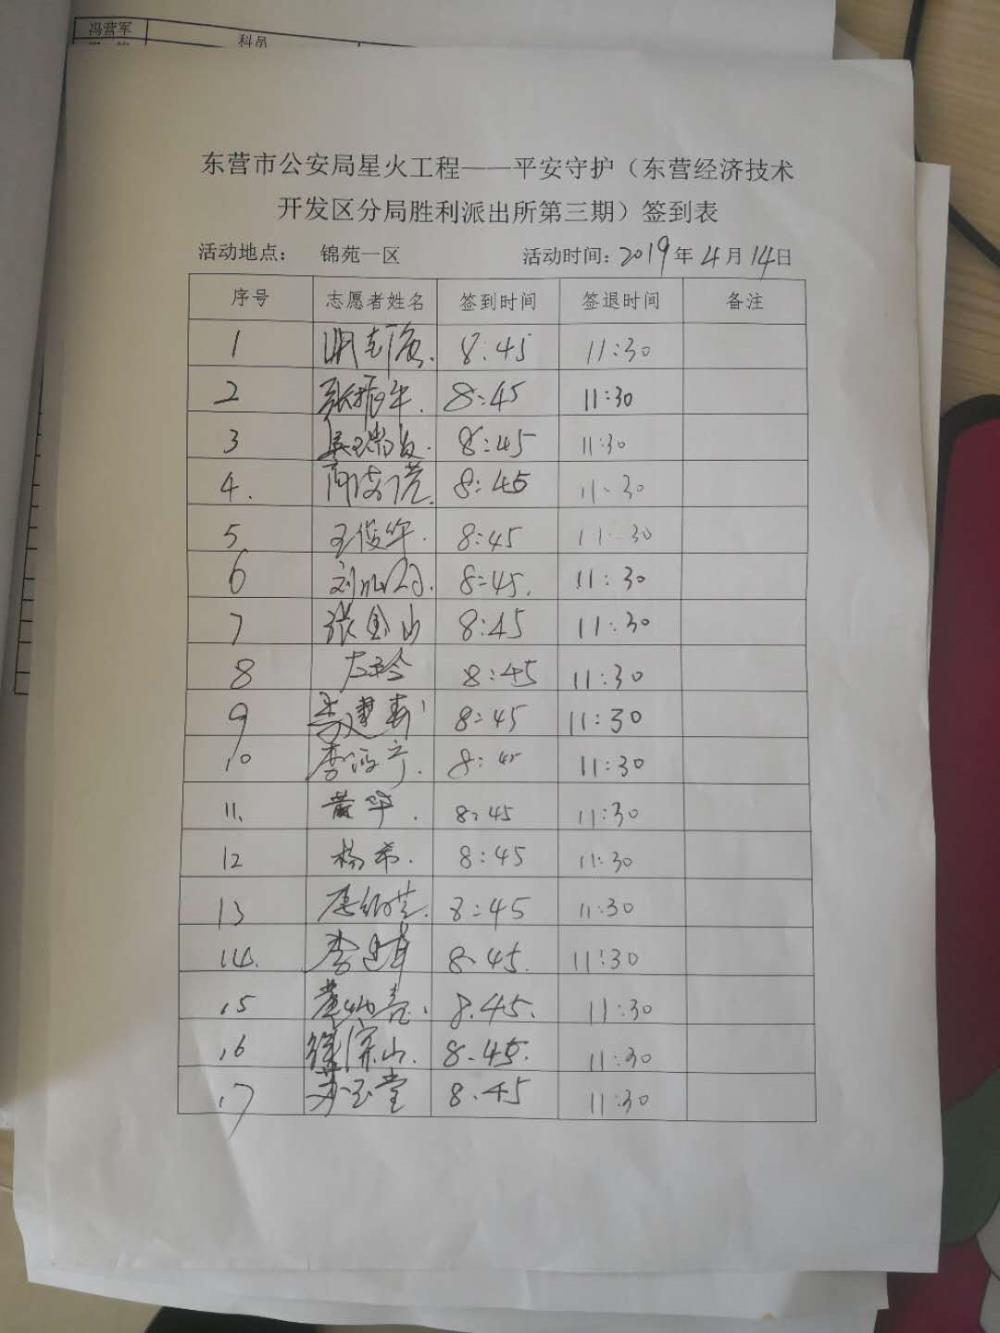 冯营军
科员
东营市公安局星火工程——平安守护（东营经济技术
开发区分局胜利派出所第三期）签到表
活动地点： 锦苑一区 活动时间：2019年4月14日
序号 志愿者姓名 签到时间 签退时间 备注
1 8:45 11:30
2 8:45 11:30
3 8:45 11:30
4. 8:45 11:30
5 王俊华. 8:45 11:30
6 8:45. 11:30
7 张金山 8:45 11:30
8 8:45 11:30
9 8:45 11:30
10 8:45 11:30
11. 黄华. 8:45 11:30
12 杨希. 8:45 11:30
13 8:45 11:30
14. 8.45. 11:30
15 8.45. 11:30
16 徐深山. 8.45. 11:30
17 苏玉堂 8.45 11:30